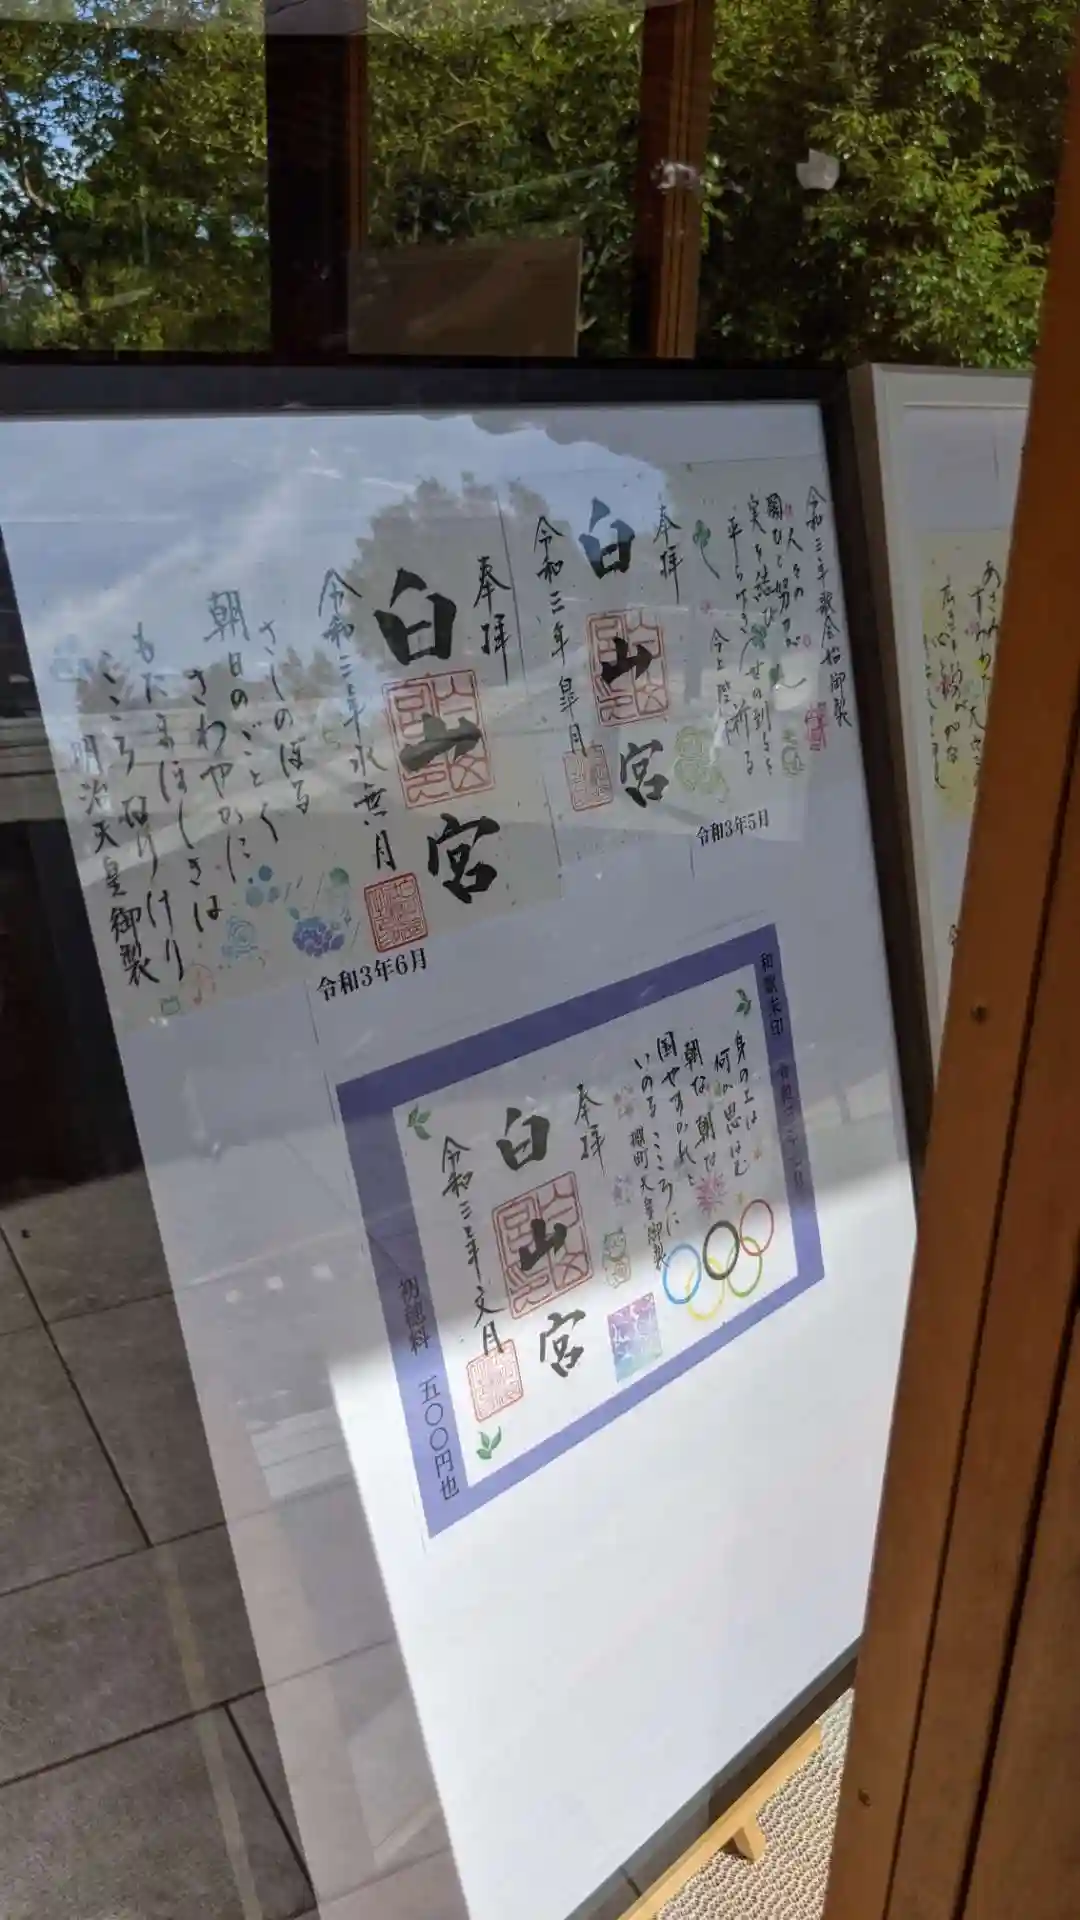 令和三年歌会始御製
人々の
願ひと努力が
実を結び
平らけき世の到るを
祈る
奉拝
白山宮
令和三年皐月
令和3年5月
奉拝
白山宮
令和三年水無月
さしのぼる
朝日のごとく
さわやかに
もたまほしきは
こころなりけり
明治天皇御製
令和3年6月
和歌朱印
身の上は
何か思はむ
朝な朝な
国やすかれと
いのるこころに
櫻町天皇御製
奉拝
白山宮
令和三年文月
初穂料 五〇〇円也